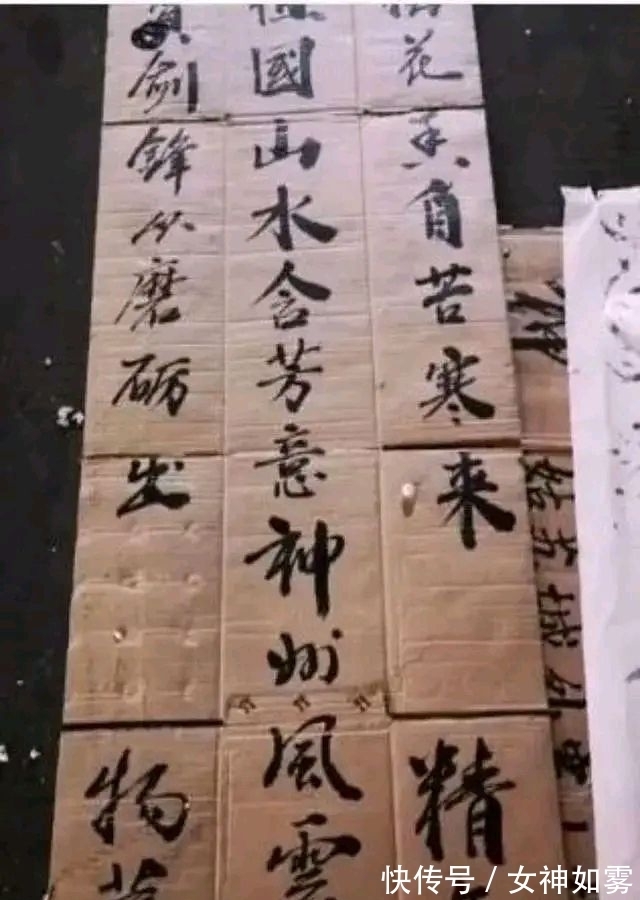 姑苏城外
花香自苦寒来
精
國山水含芳意神州風雲
劍鋒从磨砺出
物
快传号 / 女神如雾